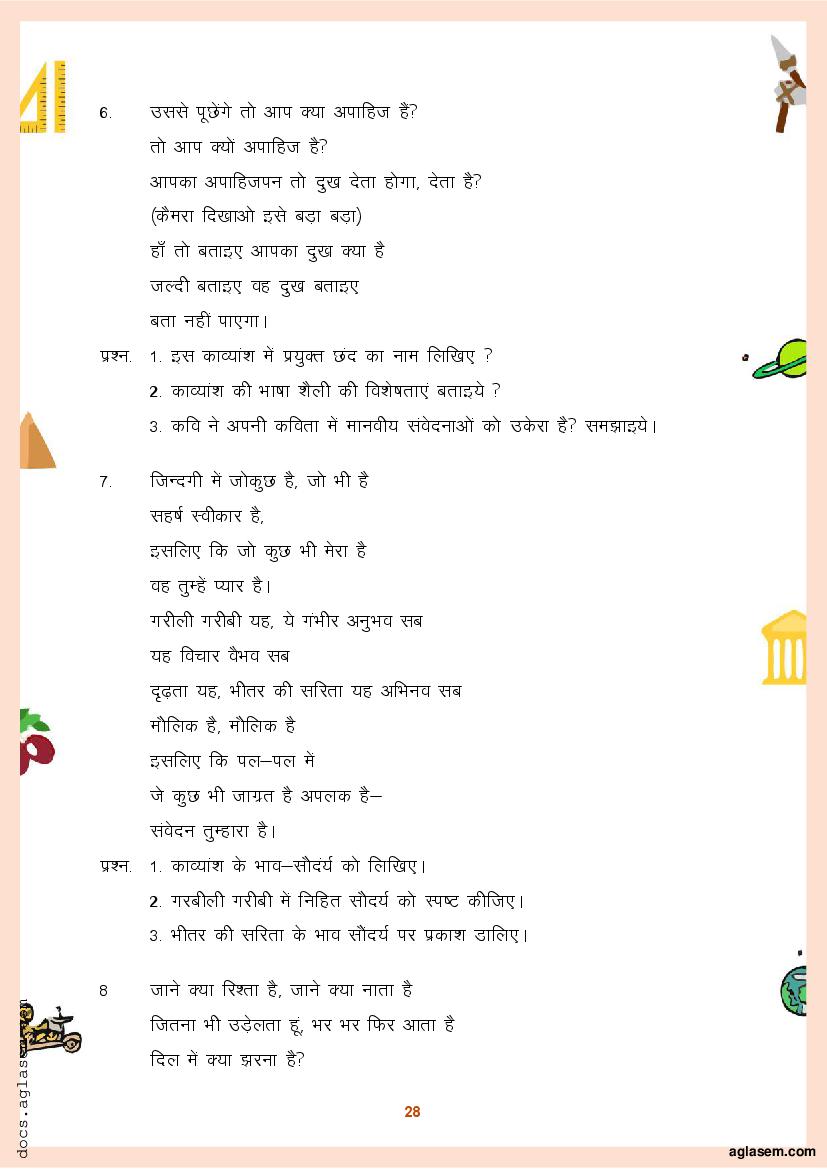 6. उससे पूछेंगे तो आप क्या अपाहिज हैं?
तो आप क्यों अपाहिज है?
आपका अपाहिजपन तो दुख देता होगा, देता है?
(कैमरा दिखाओ इसे बड़ा बड़ा)
हाँ तो बताइए आपका दुख क्या है
जल्दी बताइए वह दुख बताइए
बता नहीं पाएगा।
प्रश्न. 1. इस काव्यांश में प्रयुक्त छंद का नाम लिखिए ?
2. काव्यांश की भाषा शैली की विशेषताएं बताइये ?
3. कवि ने अपनी कविता में मानवीय संवेदनाओं को उकेरा है? समझाइये।
7. जिन्दगी में जोकुछ है, जो भी है
सहर्ष स्वीकार है,
इसलिए कि जो कुछ भी मेरा है
वह तुम्हें प्यार है।
गरीली गरीबी यह, ये गंभीर अनुभव सब
यह विचार वैभव सब
दृढ़ता यह, भीतर की सरिता यह अभिनव सब
मौलिक है, मौलिक है
इसलिए कि पल–पल में
जे कुछ भी जाग्रत है अपलक है–
संवेदन तुम्हारा है।
प्रश्न. 1. काव्यांश के भाव–सौदंर्य को लिखिए।
2. गरबीली गरीबी में निहित सौदर्य को स्पष्ट कीजिए।
3. भीतर की सरिता के भाव सौंदर्य पर प्रकाश डालिए।
8 जाने क्या रिश्ता है, जाने क्या नाता है
जितना भी उड़ेलता हूं, भर भर फिर आता है
दिल में क्या झरना है?
28
docs.aglasem
aglasem.com